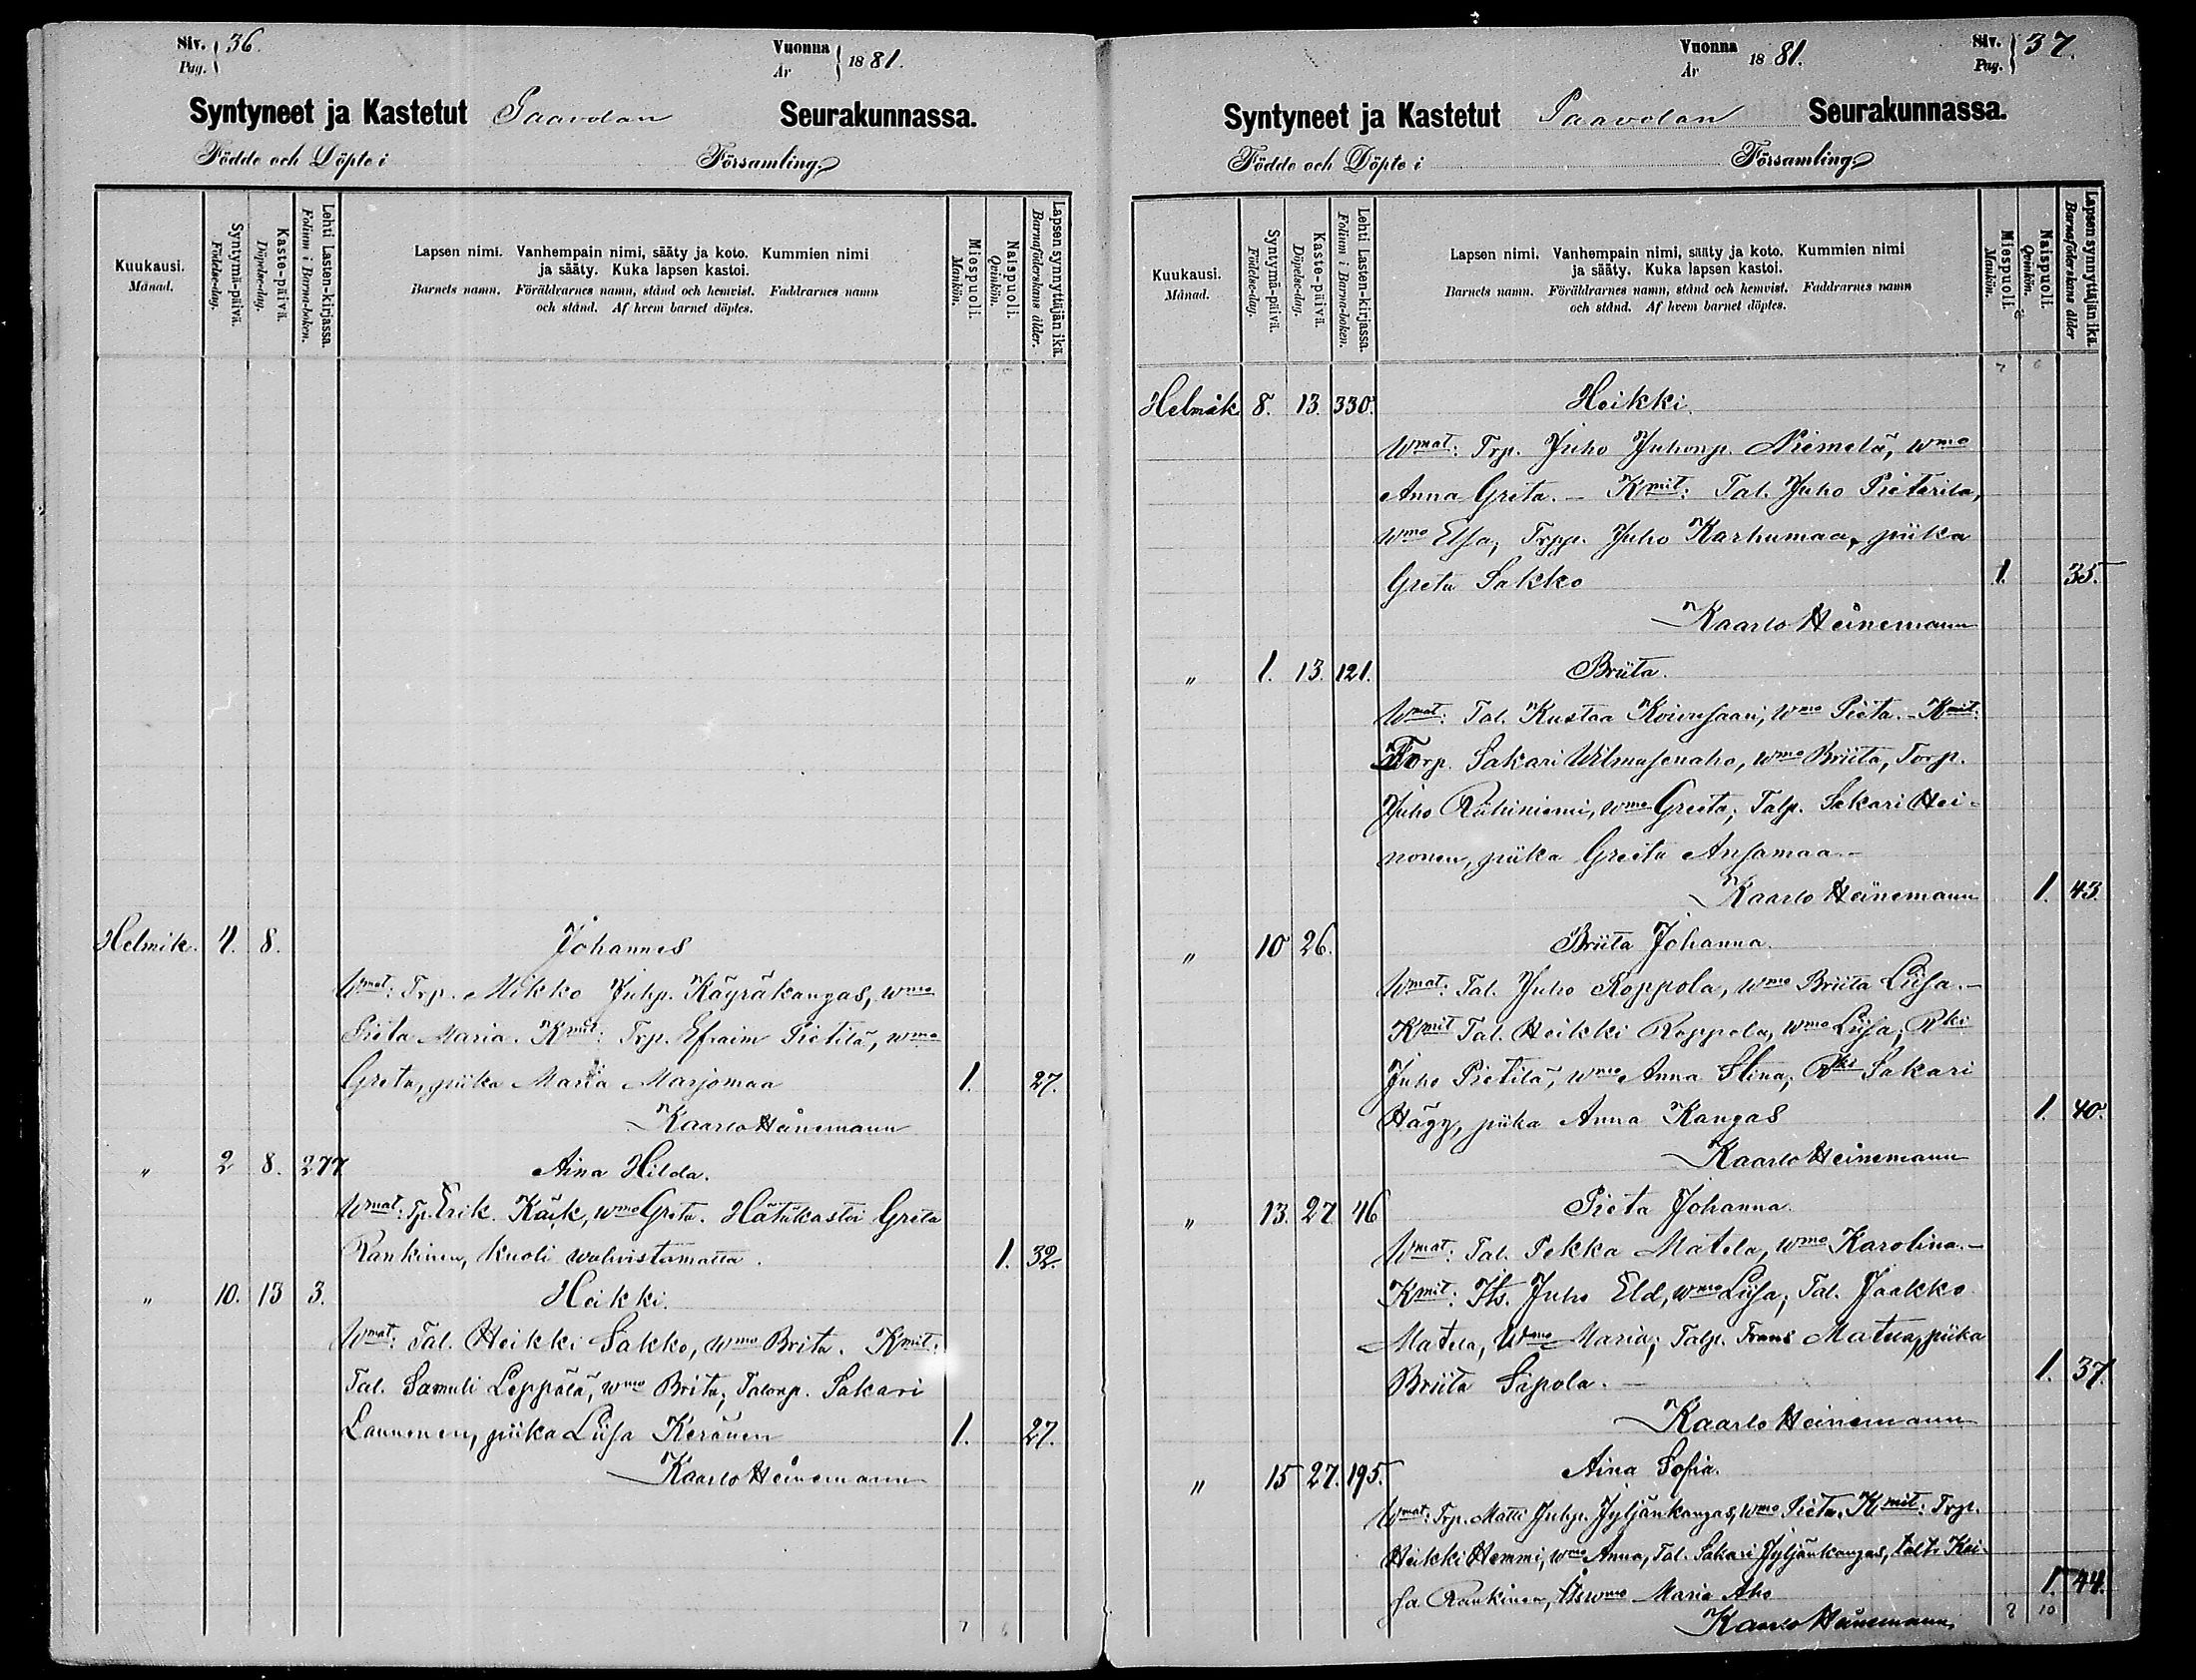 Siv. 36.
Pag.
Vuonna 1881.
År
Syntyneet ja Kastetut Paavolan Seurakunnassa.
Födde och Döpte i Församling.
Kuukausi.
Månad.
Syntymä-päivä.
Födelse-dag.
Kaste-päivä.
Döpelse-dag.
Lehti Lasten-kirjassa.
Folium i Barna-boken.
Lapsen nimi. Vanhempain nimi, sääty ja koto. Kummien nimi
ja sääty. Kuka lapsen kastoi.
Barnets namn. Föräldrarnes namn, stånd och hemvist. Faddrarnes namn
och stånd. Af hvem barnet döptes.
Miespuoli.
Mankön.
Naispuoli.
Qvinkön.
Lapsen synnyttäjän ikä.
Barnaföderskans ålder.
Helmik. 4. 8. Johannes
Wmat: Trp. Mikko Juhp. Käyräkangas, wmo
Pieta Maria. Kmit: Trp. Efraim Pietilä, wmo
Greta, piika Maria Marjomaa 1. 27.
Kaarlo Heinemann
" 2 8. 277 Aina Hilda.
Wmat: Tp. Erik Käik, wmo Greta. Hätäkastoi Greta
Rankinen, kuoli wahvistamatta. 1. 32.
" 10. 13 3. Heikki.
Wmat: Tal. Heikki Sakko, wmo Brita. Kmit:
Tal. Samuli Leppälä, wmo Brita; Talonp. Sakari
Launonen, piika Liisa Keränen 1. 27.
Kaarlo Heinemann
7 6
Vuonna 1881.
År
Siv. 37.
Pag.
Syntyneet ja Kastetut Paavolan Seurakunnassa.
Födde och Döpte i Församling.
Kuukausi.
Månad.
Syntymä-päivä.
Födelse-dag.
Kaste-päivä.
Döpelse-dag.
Lehti Lasten-kirjassa.
Folium i Barna-boken.
Lapsen nimi. Vanhempain nimi, sääty ja koto. Kummien nimi
ja sääty. Kuka lapsen kastoi.
Barnets namn. Föräldrarnes namn, stånd och hemvist. Faddrarnes namn
och stånd. Af hvem barnet döptes.
Miespuoli.
Mankön.
Naispuoli.
Qvinkön.
Lapsen synnyttäjän ikä.
Barnaföderskans ålder
7 6
Helmik 8. 13. 330. Heikki.
Wmat: Trp. Juho Juhonp. Niemelä, wmo
Anna Greta. – Kmit: Tal. Juho Pieterila,
wmo Elsa; Trpp. Juho Karhumaa, piika
Greta Sakko 1. 35.
Kaarlo Heinemann
" 1. 13. 121. Briita.
Wmat: Tal. Kustaa Koivusaari, wmo Pieta. – Kmit:
Torp. Sakari Wilmusenaho, wmo Briita, Torp.
Juho Riihiniemi, wmo Greeta; Talp. Sakari Hei-
nonen, piika Greeta Ansamaa. –
Kaarlo Heinemann 1. 43.
" 10 26. Briita Johanna.
Wmat: Tal. Juho Roppola, wmo Briita Liisa. –
Kmit Tal. Heikki Roppola, wmo Liisa; Rki
Juho Pietilä, wmo Anna Stina; Rki Sakari
Hägg, piika Anna Kangas 1. 40.
Kaarlo Heinemann
" 13. 27. 46 Pieta Johanna.
Wmat: Tal. Pekka Matela, wmo Karolina. –
Kmit: Its. Juho Eld, wmo Liisa; Tal. Jaakko
Matela, Wmo Maria; Talp. Frans Matela, piika
Briita Sipola. – 1. 37.
Kaarlo Heinemann
" 15 27. 195. Aina Sofia.
Wmat: Trp. Matti Juhp. Jyljänkangas, wmo Pieta. Kmit: Trp.
Heikki Hemmi, wmo Anna, Tal. Sakari Jyljänkangas, talt. Kai-
sa Rankinen, Itswmo Maria Aho 1. 44.
Kaarlo Heinemann
8 10